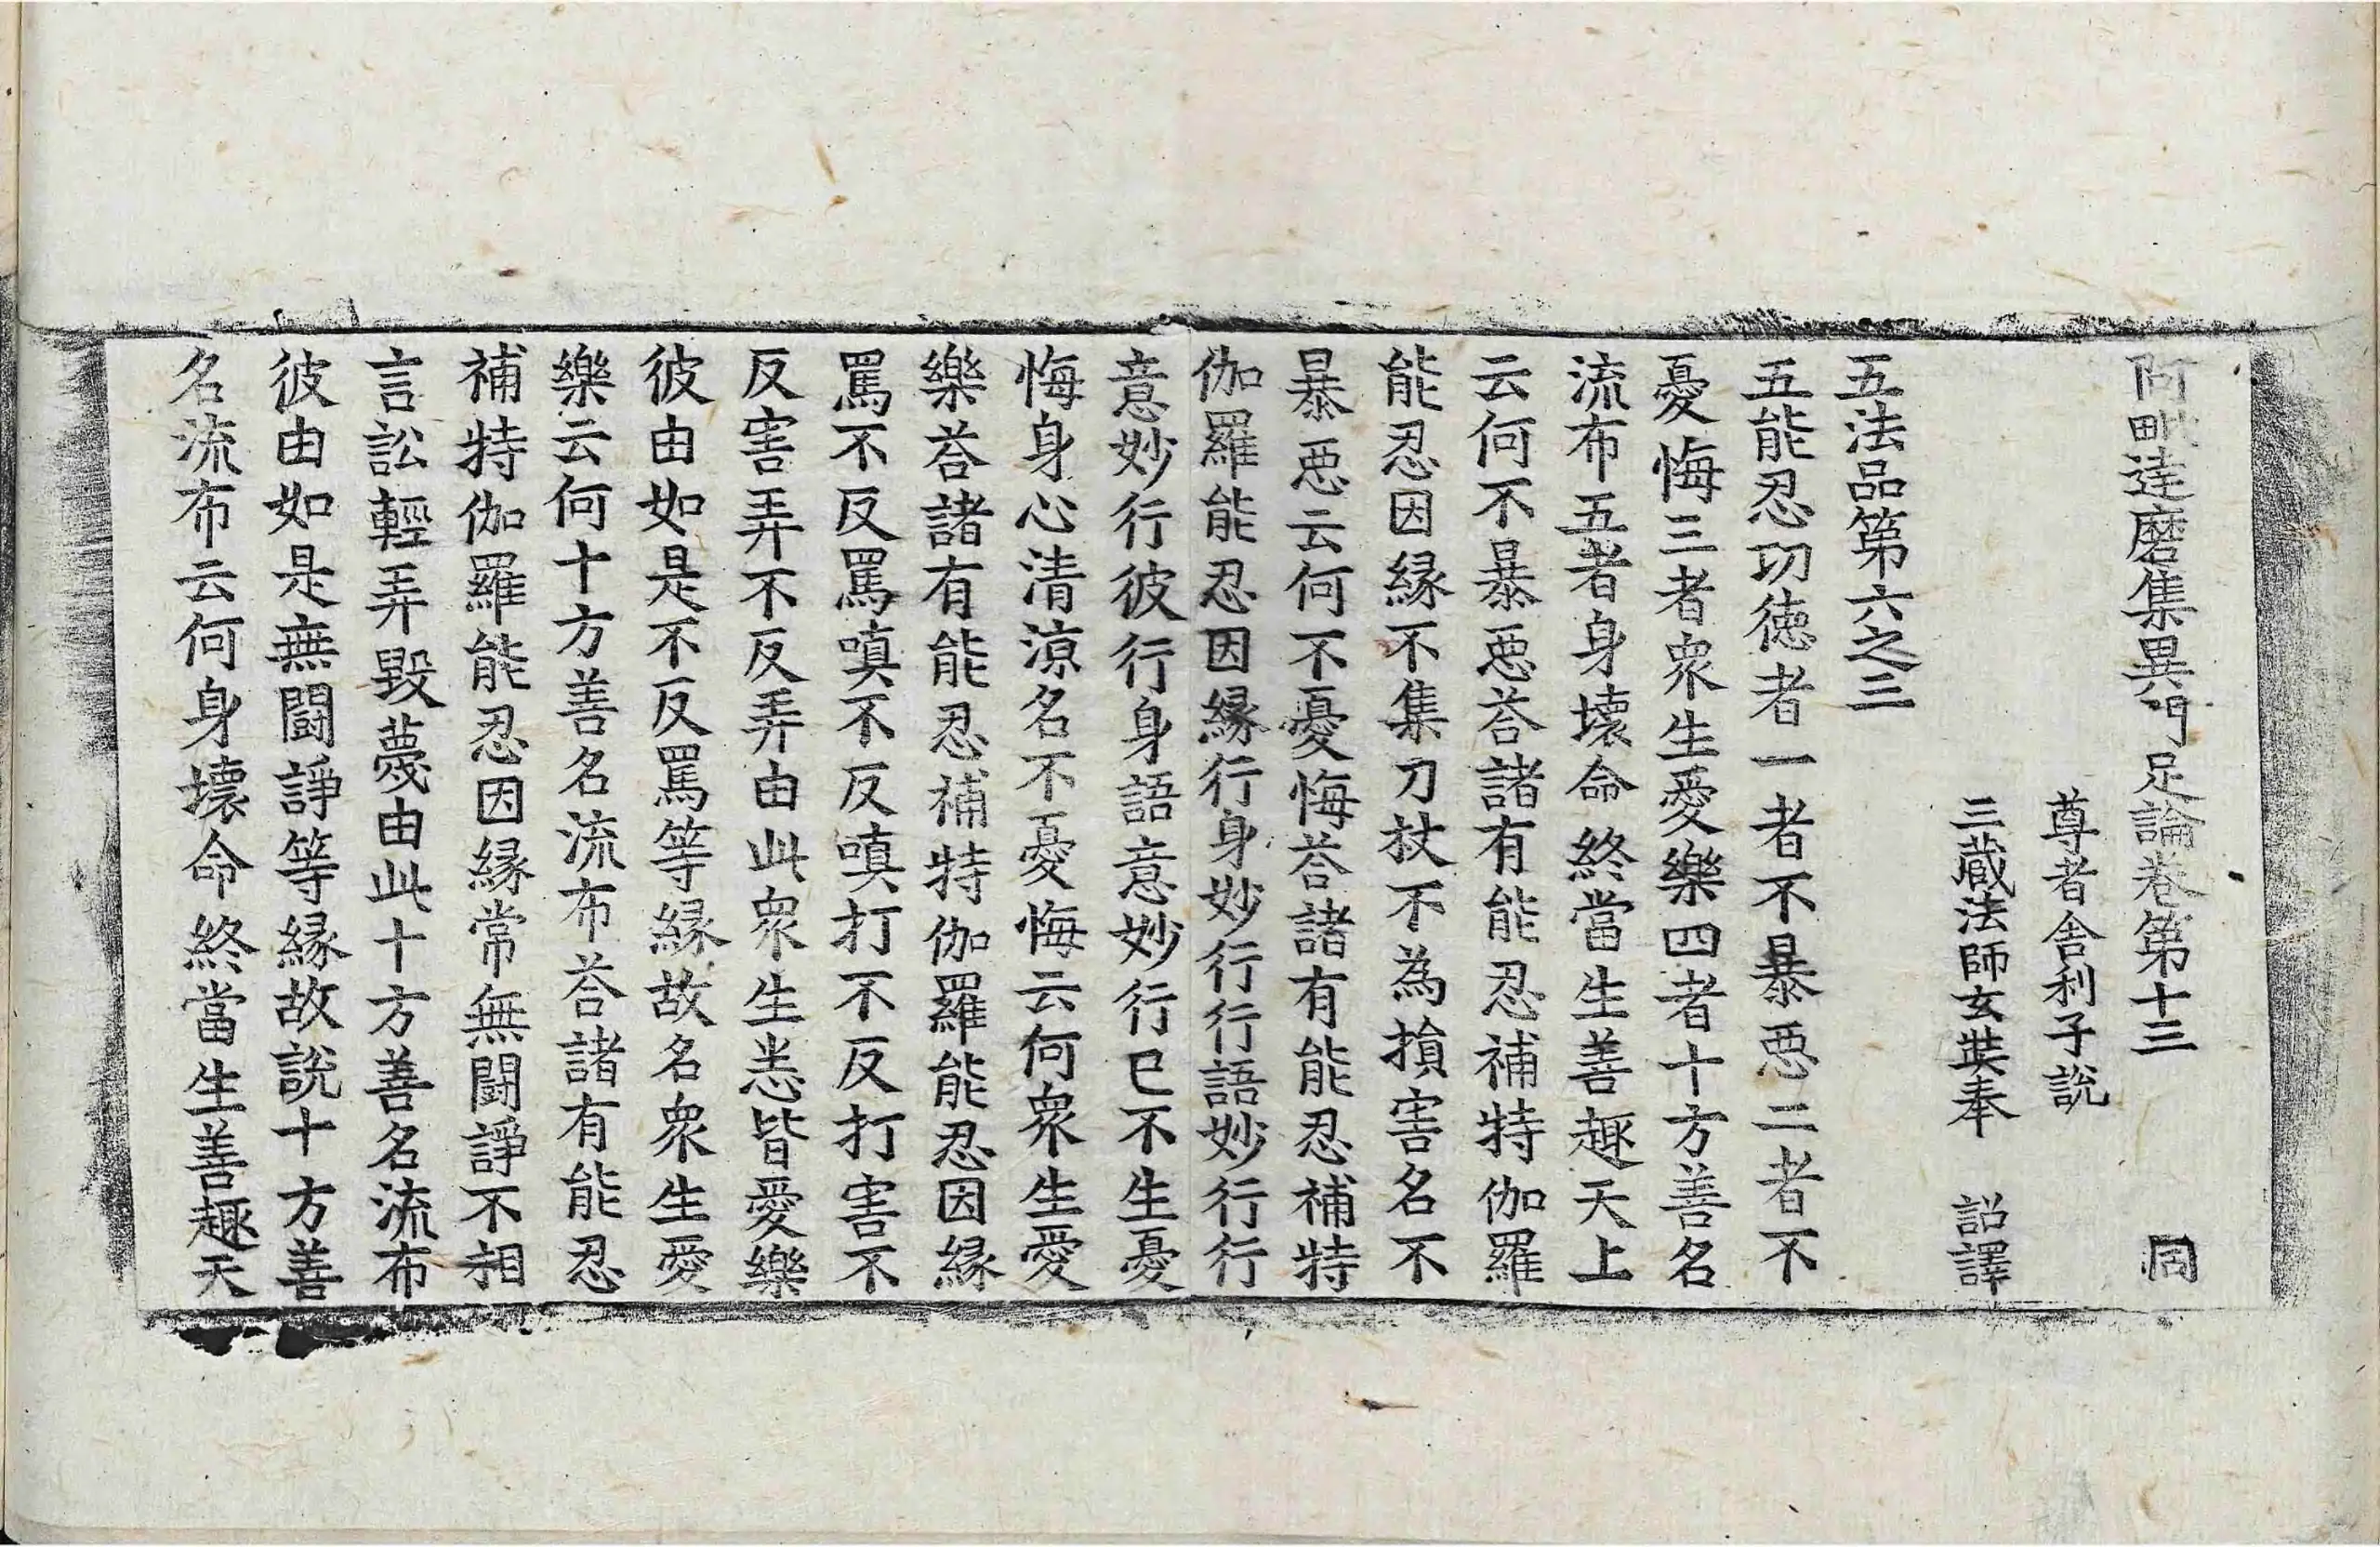 阿毗達磨集異門足論卷第十三 同
尊者舍利子說
三藏法師玄奘奉 詔譯
五法品第六之三
五能忍功徳者一者不暴惡二者不
憂悔三者衆生愛樂四者十方善名
流布五者身壞命終當生善趣天上
云何不暴惡荅諸有能忍補特伽羅
能忍因縁不集刀杖不為損害名不
暴惡云何不憂悔荅諸有能忍補特
伽羅能忍因縁行身妙行行語妙行行
意妙行彼行身語意妙行已不生憂
悔身心清涼名不憂悔云何衆生愛
樂荅諸有能忍補特伽羅能忍因縁
罵不反罵嗔不反嗔打不反打害不
反害弄不反弄由此衆生恙皆愛樂
彼由如是不反罵等縁故名衆生愛
樂云何十方善名流布荅諸有能忍
補特伽羅能忍因縁常無闘諍不相
言訟輕弄毀蔑由此十方善名流布
彼由如是無闘諍等縁故說十方善
名流布云何身壞命終當生善趣天